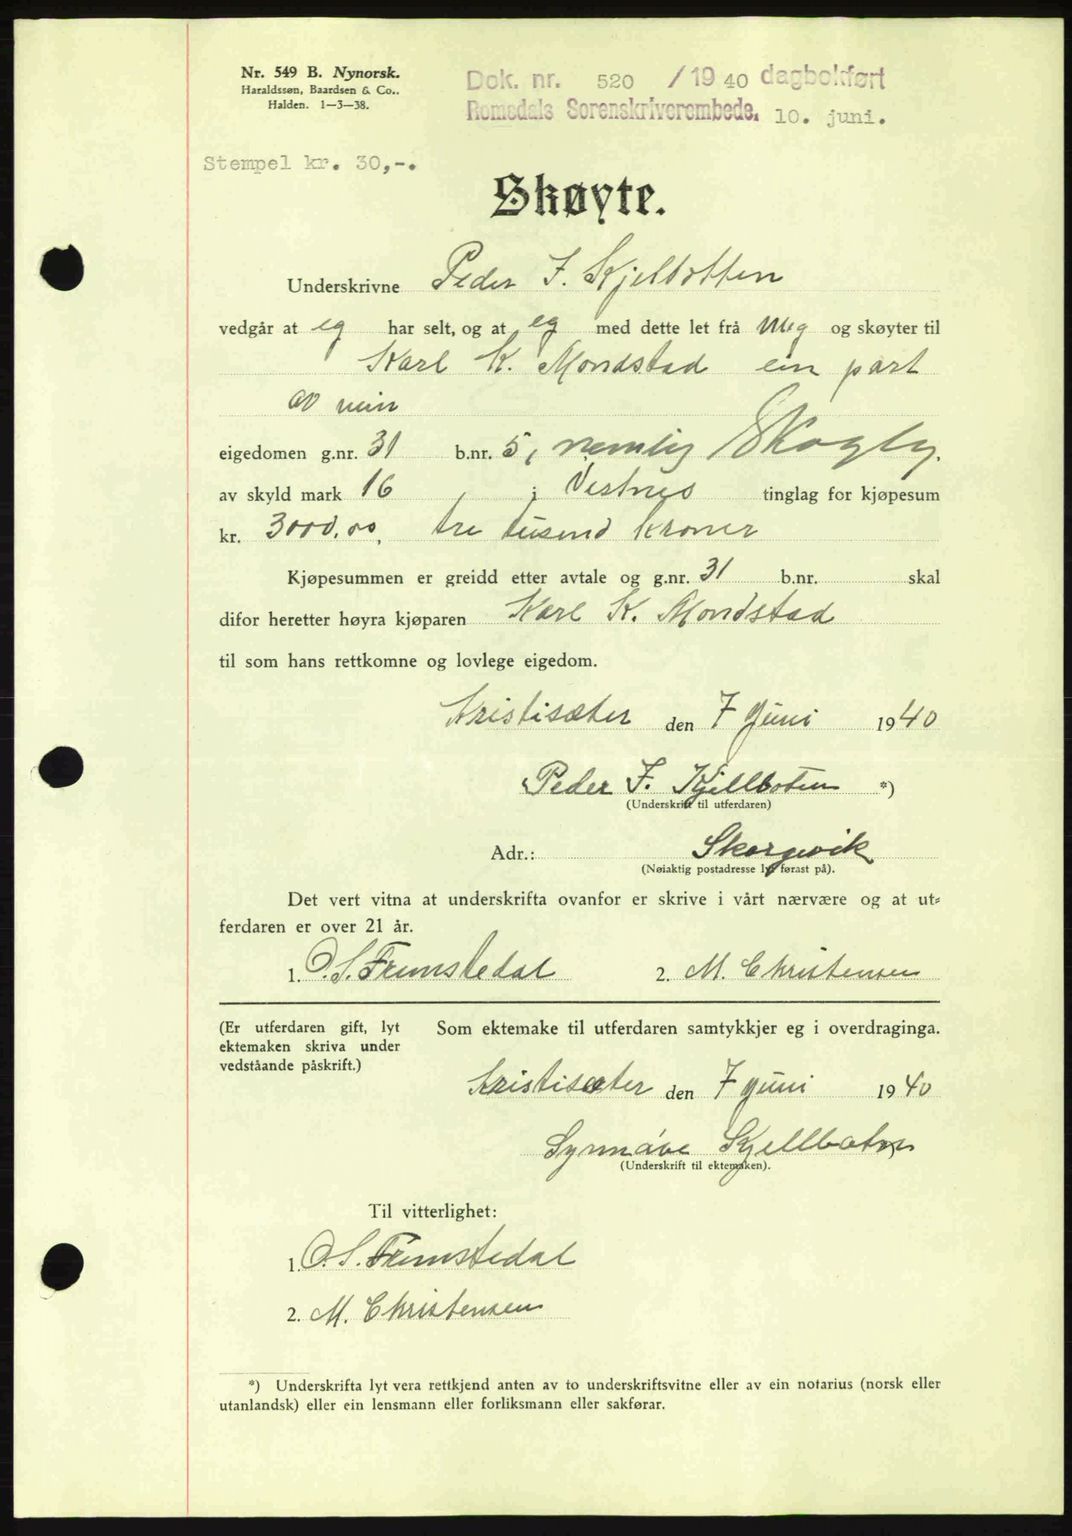 Nr. 549 B. Nynorsk.
Haraldssøn, Baardsen & Co..
Halden. 1—3—38.
Dok. nr. 520 /1940 dagbokført
Romsdals Sorenskriverembede. 10. juni.
Stempel kr. 30,-.
Skøyte.
Underskrivne Peder J. Kjelbotten
vedgår at eg har selt, og at eg med dette let frå meg og skøyter til
Karl K. Mondstad ein part
av min
eigedomen g.nr. 31 b.nr. 5, nemlig Skogly.
av skyld mark 16 , i Vestnes tinglag for kjøpesum
kr. 3000.00, tre tusend kroner
Kjøpesummen er greidd etter avtale og g.nr. 31 b.nr. skal
difor heretter høyra kjøparen Karl K. Mondstad
til som hans rettkomne og lovlege eigedom.
Kristisæter den 7 juni 1940
Peder J. Kjellboten *)
(Underskrift til utferdaren)
Adr.: Skorgevik
(Nøiaktig postadresse lyt førast på).
Det vert vitna at underskrifta ovanfor er skrive i vårt nærvære og at ut-
ferdaren er over 21 år.
1. O. S. Fremstedal 2. M. Christensen
(Er utferdaren gift, lyt
ektemaken skriva under
vedståande påskrift.)
Som ektemake til utferdaren samtykkjer eg i overdraginga.
Kristisæter den 7 juni 1940
Synnøve Kjellboten
(Underskrift til ektemaken).
Til vitterlighet:
1. O. S. Fremstedal
2. M. Christensen
*) Underskrifta lyt vera rettkjend anten av to underskriftsvitne eller av ein notarius (norsk eller
utanlandsk) eller ein lensmann eller forliksmann eller sakførar.